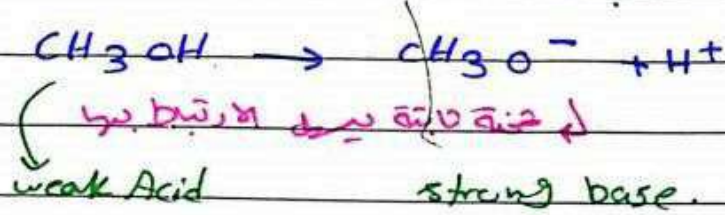 CH3OH → CH3O⁻ + H⁺
شحنة ثابتة يسهل الارتباط بها
weak Acid strong base.